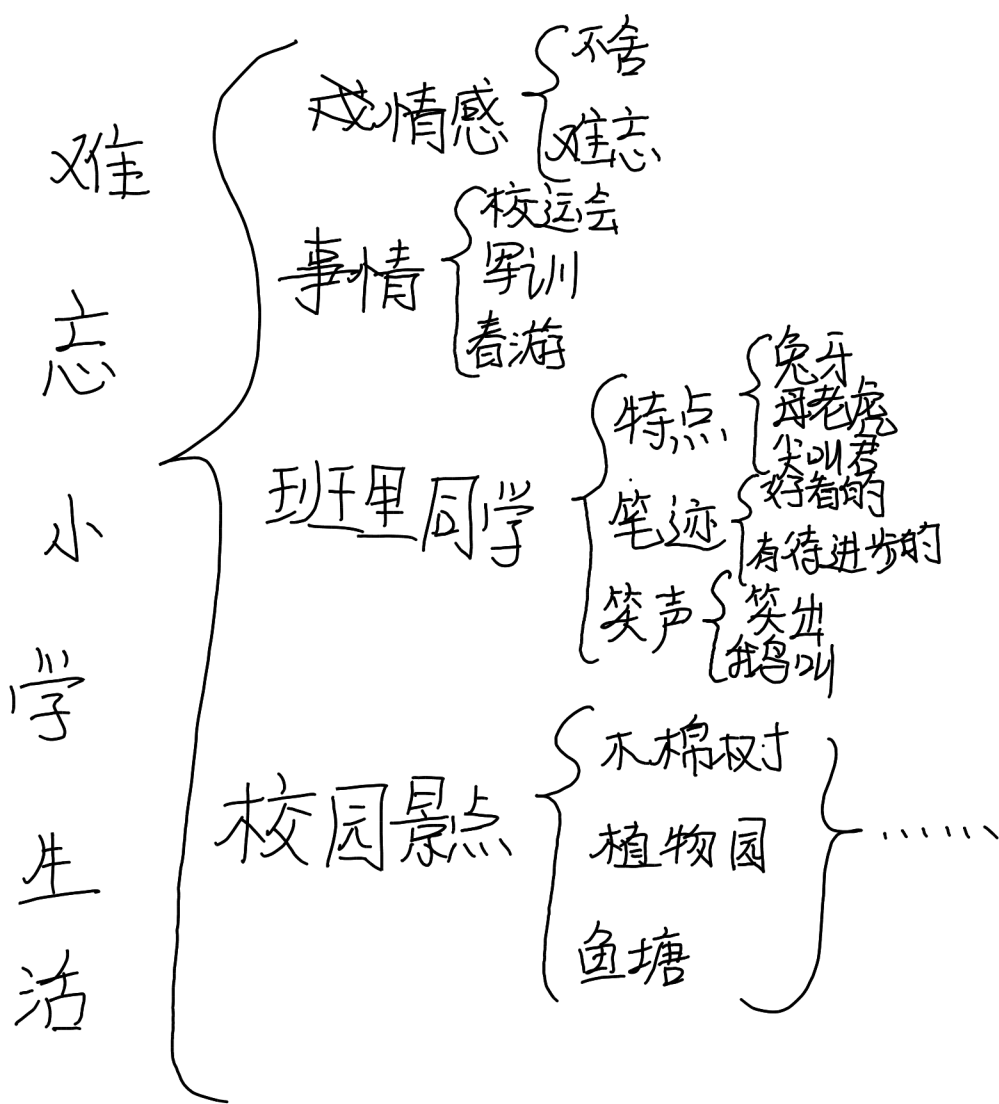 难忘小学生活
情感
不舍
难忘
事情
校运会
军训
春游
班里同学
特点
兔牙
母老虎
尖叫君
笔迹
好看的
有待进步的
笑声
笑出
鹅叫
校园景点
木棉树
植物园
鱼塘
……